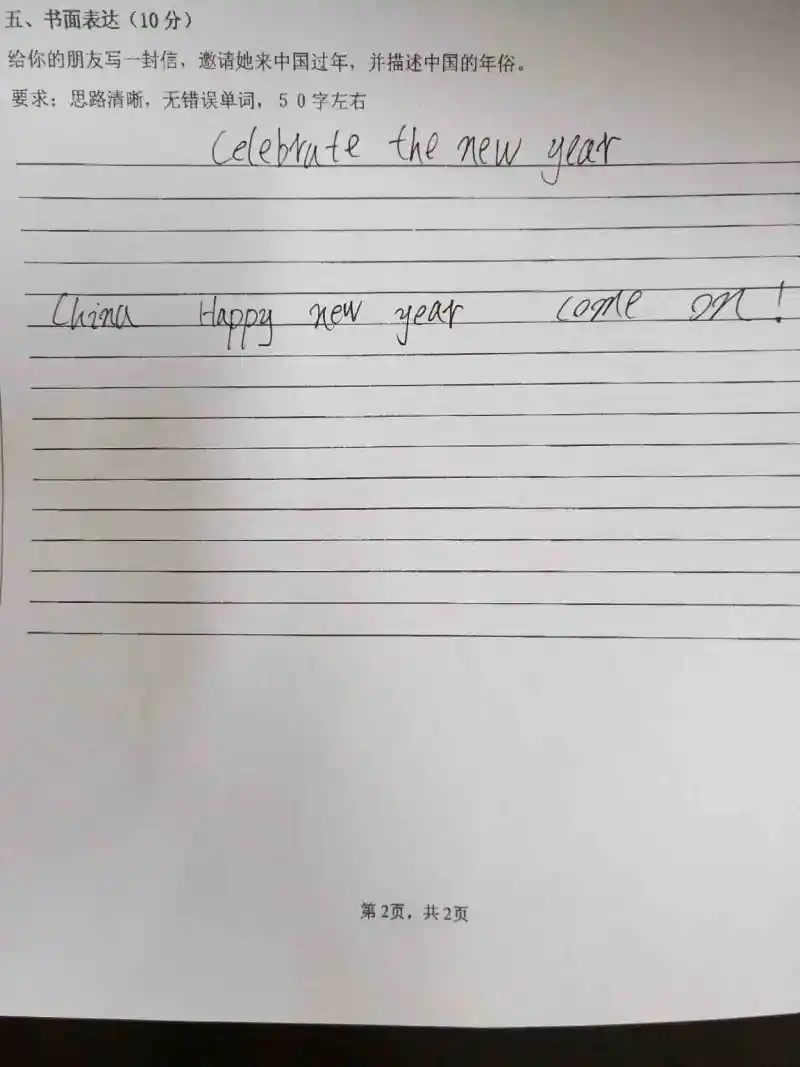 五、书面表达（10分）
给你的朋友写一封信，邀请她来中国过年，并描述中国的年俗。
要求：思路清晰，无错误单词，５０字左右
Celebrate the new year
China Happy new year come on!
第2页，共2页